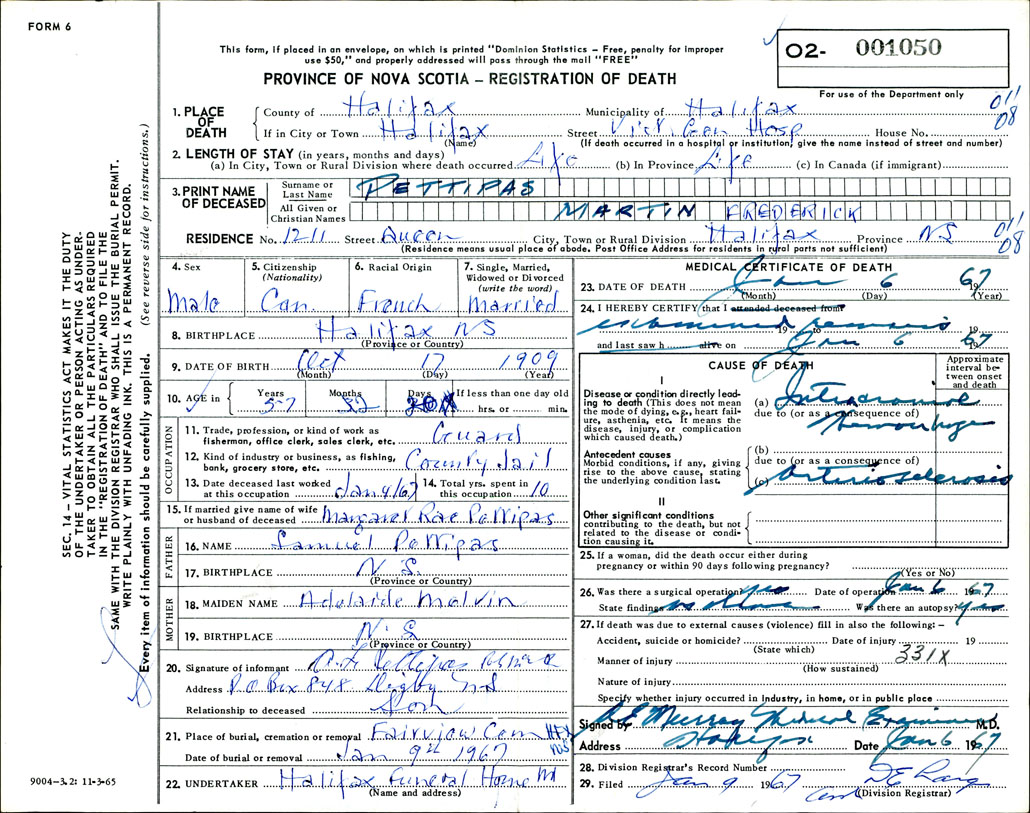 FORM 6
This form, if placed in an envelope, on which is printed "Dominion Statistics – Free, penalty for improper
use $50," and properly addressed will pass through the mail "FREE"
PROVINCE OF NOVA SCOTIA – REGISTRATION OF DEATH
O2- 001050
For use of the Department only
SEC. 14 – VITAL STATISTICS ACT MAKES IT THE DUTY
OF THE UNDERTAKER OR PERSON ACTING AS UNDER-
TAKER TO OBTAIN ALL THE PARTICULARS REQUIRED
IN THE "REGISTRATION OF DEATH" AND TO FILE THE
SAME WITH THE DIVISION REGISTRAR WHO SHALL ISSUE THE BURIAL PERMIT.
WRITE PLAINLY WITH UNFADING INK. THIS IS A PERMANENT RECORD.
Every item of information should be carefully supplied. (See reverse side for instructions.)
1. PLACE OF DEATH
County of Halifax Municipality of Halifax 011
08
If in City or Town Halifax Street Vict. Gen Hosp House No.
(Name) (If death occurred in a hospital or institution, give the name instead of street and number)
2. LENGTH OF STAY (in years, months and days)
(a) In City, Town or Rural Division where death occurred Life (b) In Province Life (c) In Canada (if immigrant)
3. PRINT NAME OF DECEASED
Surname or Last Name PETTIPAS
All Given or Christian Names MARTIN FREDERICK
RESIDENCE No. 1211 Street Queen City, Town or Rural Division Halifax Province NS 011
08
(Residence means usual place of abode. Post Office Address for residents in rural parts not sufficient)
4. Sex
Male
5. Citizenship (Nationality)
Can
6. Racial Origin
French
7. Single, Married, Widowed or Divorced (write the word)
Married
8. BIRTHPLACE Halifax NS
(Province or Country)
9. DATE OF BIRTH Oct 17 1909
(Month) (Day) (Year)
10. AGE in Years 57 Months Days If less than one day old
hrs. or min.
OCCUPATION
11. Trade, profession, or kind of work as fisherman, office clerk, sales clerk, etc. Guard
12. Kind of industry or business, as fishing, bank, grocery store, etc. County Jail
13. Date deceased last worked at this occupation Jan 4/67 14. Total yrs. spent in this occupation 10
15. If married give name of wife or husband of deceased Margaret Rae Pettipas
FATHER
16. NAME Samuel Pettipas
17. BIRTHPLACE N S
(Province or Country)
MOTHER
18. MAIDEN NAME Adelaide Melvin
19. BIRTHPLACE N S
(Province or Country)
20. Signature of informant Pettipas
Address P.O Box 848 Digby NS
Relationship to deceased Son
21. Place of burial, cremation or removal Fairview Cem Hfx NS
Date of burial or removal Jan 9th 1967
22. UNDERTAKER Halifax Funeral Home
(Name and address)
9004–3.2: 11-3-65
MEDICAL CERTIFICATE OF DEATH
23. DATE OF DEATH Jan 6 1967
(Month) (Day) (Year)
24. I HEREBY CERTIFY that I attended deceased from
examined remains 19 to 19
and last saw h alive on Jan 6 1967
CAUSE OF DEATH
Approximate interval between onset and death
I
Disease or condition directly leading to death (This does not mean the mode of dying, e.g., heart failure, asthenia, etc. It means the disease, injury, or complication which caused death.)
(a) Intracranial
due to (or as a consequence of)
hemorrhage
Antecedent causes
Morbid conditions, if any, giving rise to the above cause, stating the underlying condition last.
(b)
due to (or as a consequence of)
(c) Arteriosclerosis
II
Other significant conditions
contributing to the death, but not related to the disease or condition causing it.
25. If a woman, did the death occur either during pregnancy or within 90 days following pregnancy?
(Yes or No)
26. Was there a surgical operation? yes Date of operation Jan 6 1967
State findings as above Was there an autopsy? yes
27. If death was due to external causes (violence) fill in also the following: –
Accident, suicide or homicide? Date of injury 19
(State which) 331X
Manner of injury
(How sustained)
Nature of injury
Specify whether injury occurred in industry, in home, or in public place
Signed by Murray Medical Examiner M.D.
Address Halifax Date Jan 6 1967
28. Division Registrar's Record Number
29. Filed Jan 9 1967
(Division Registrar)